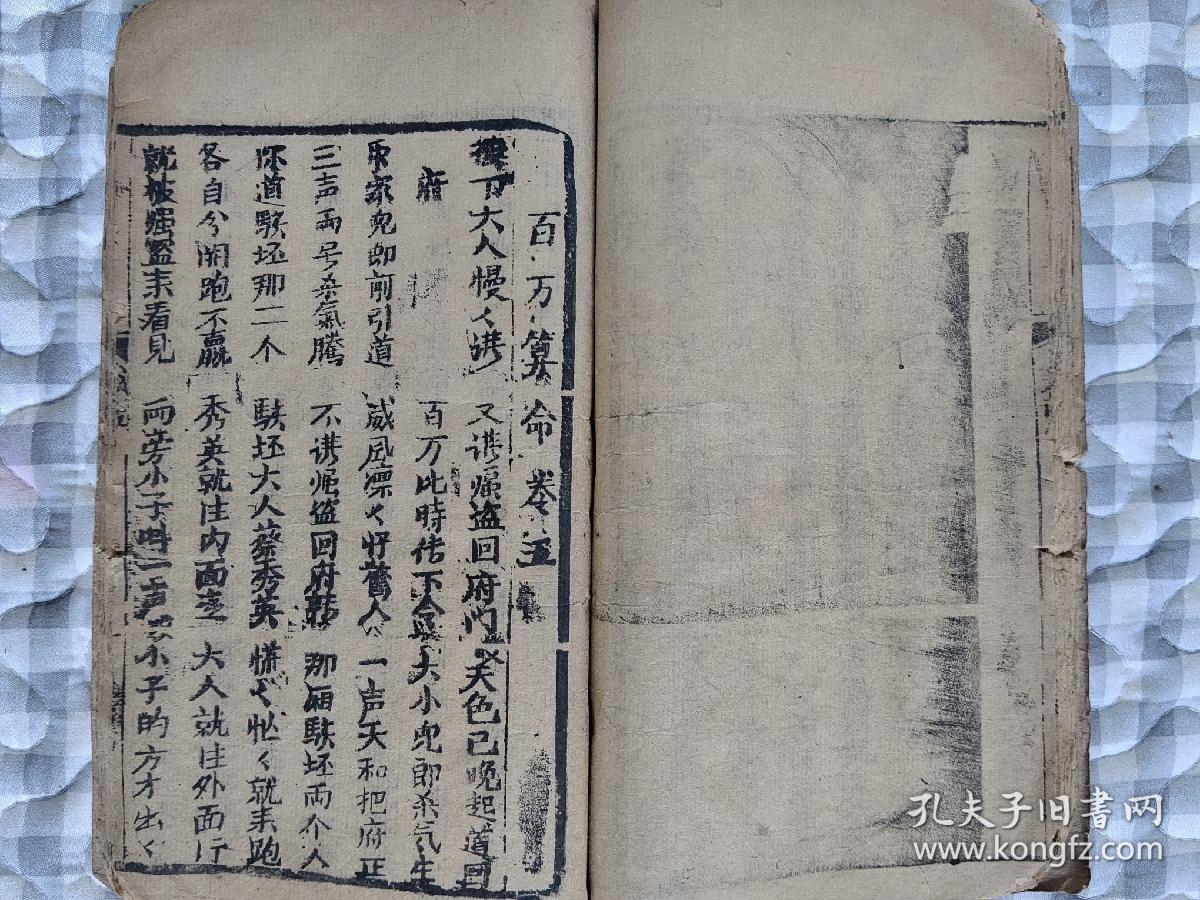 百万算命卷五
大人慢々讲 又讲 盗回府门 天色已晚起道回
府 百万此時传下令 大小児郎杀气生
家児郎前引道 威風凛々好驚人 一声天和把府正
三声両号杀氣騰 不讲 盗回府 那厢駭坯両个人
你道駭坯那二个 駭坯大人蔡秀英 慌々忙々就来跑
各自分開跑不贏 秀英就往内面走 大人就往外面行
就被 盗来看見 両旁小子 一声 小子的方才出々
孔夫子旧书网
www.kongfz.com